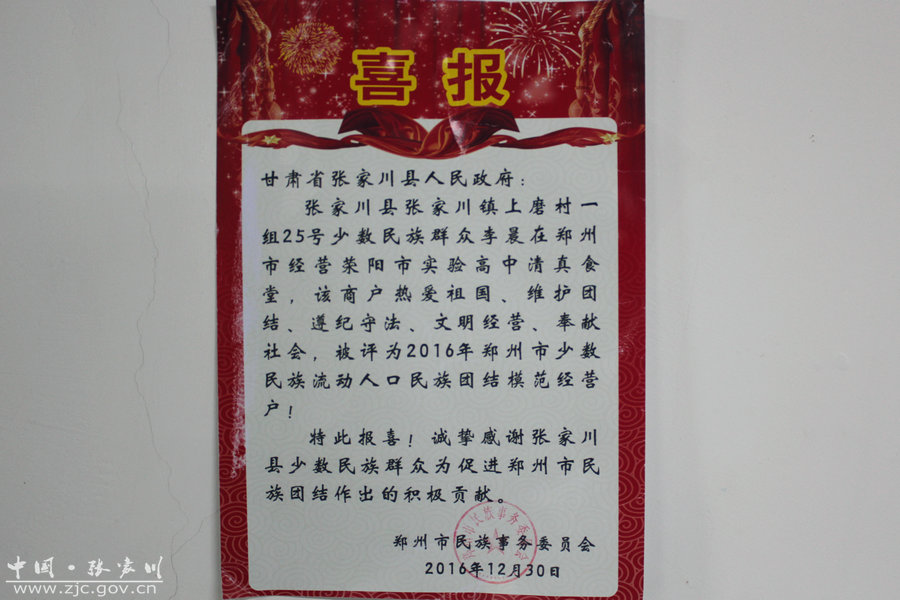 喜报
甘肃省张家川县人民政府：
张家川县张家川镇上磨村一
组25号少数民族群众李晨在郑州
市经营荥阳市实验高中清真食
堂，该商户热爱祖国、维护团
结、遵纪守法、文明经营、奉献
社会，被评为2016年郑州市少数
民族流动人口民族团结模范经营
户！
特此报喜！诚挚感谢张家川
县少数民族群众为促进郑州市民
族团结作出的积极贡献。
郑州市民族事务委员会
2016年12月30日
中国·张家川
www.zjc.gov.cn